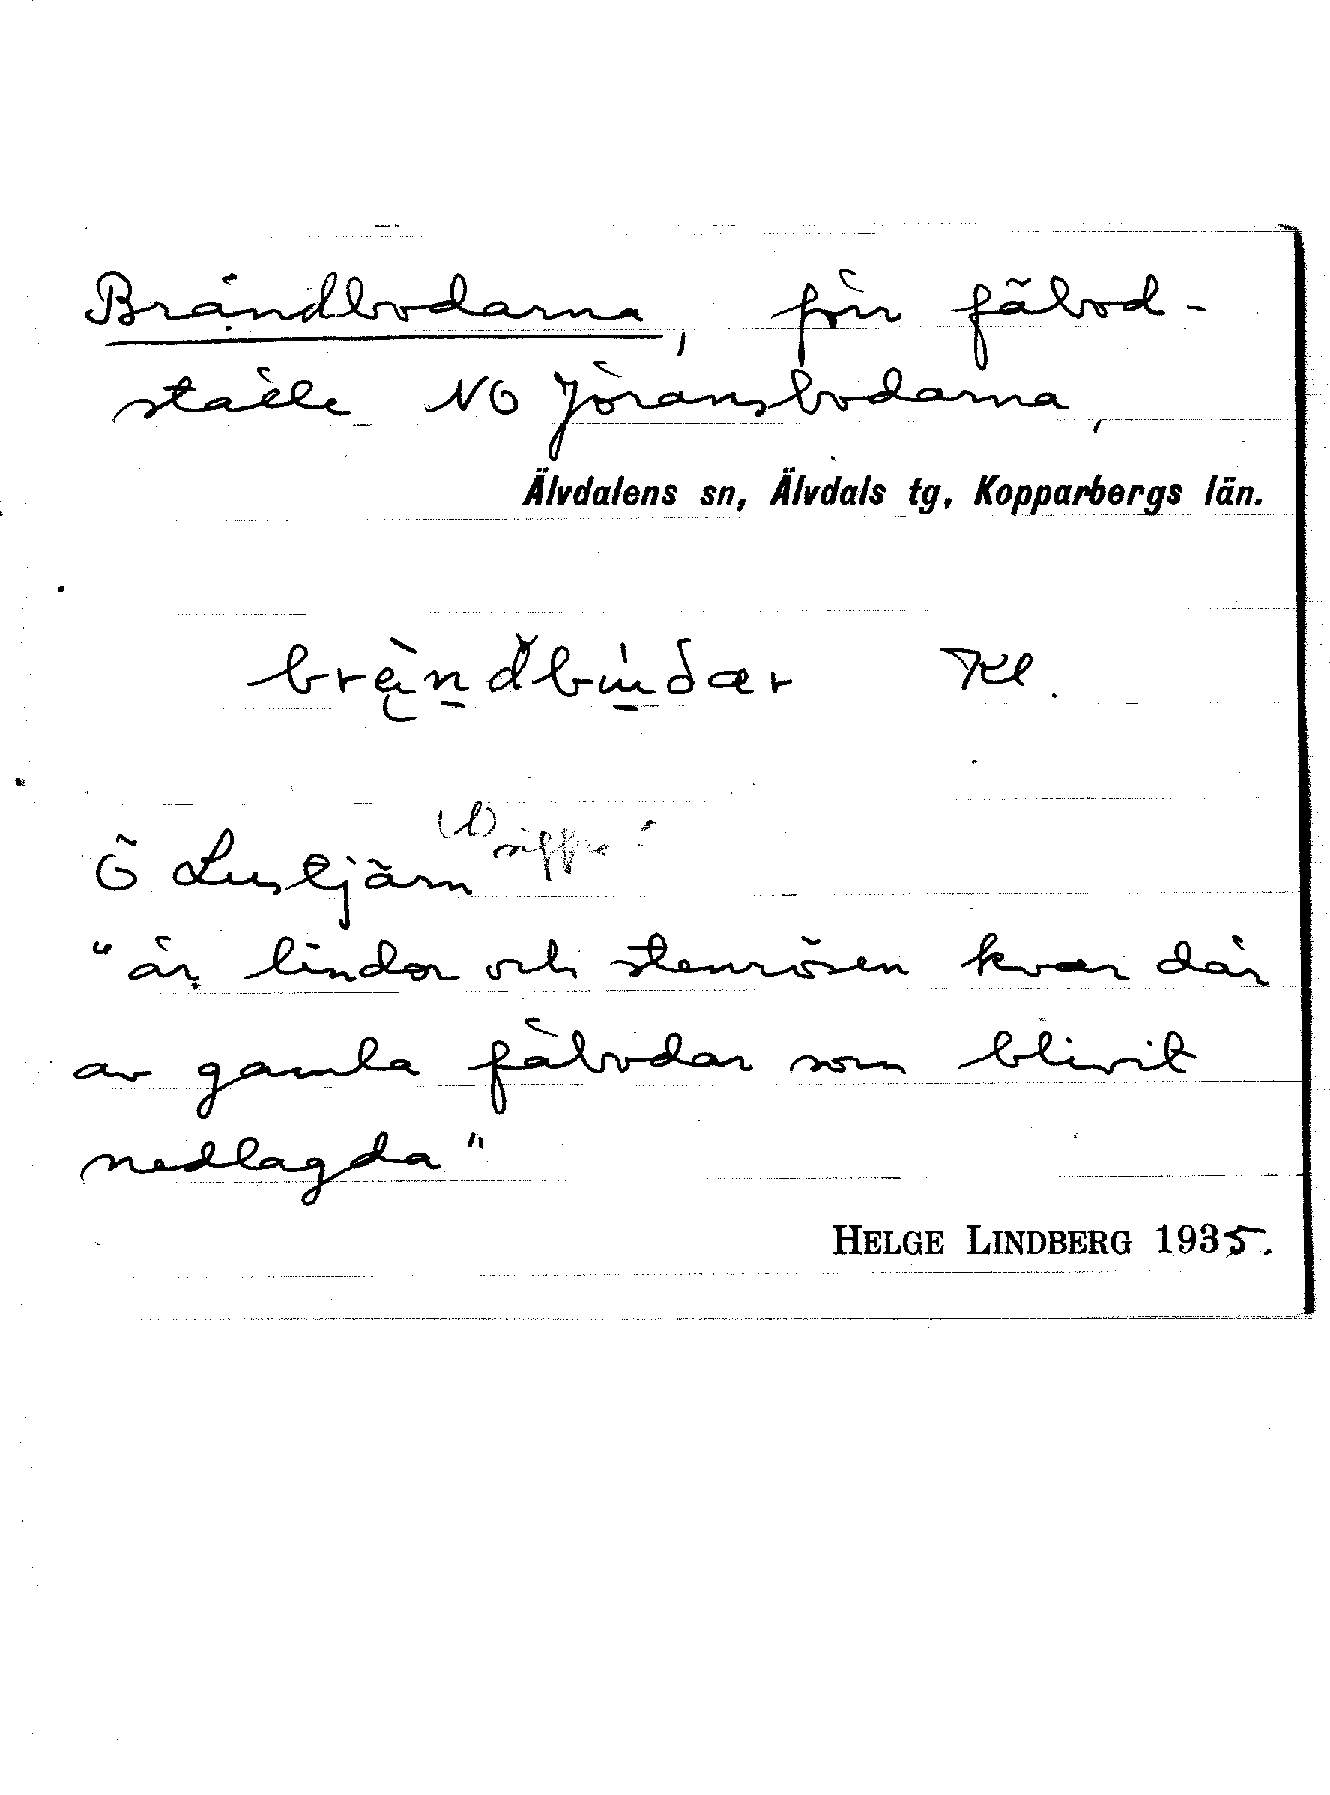 Brändbodarna, förr fäbod-
ställe NO Jöransbodarna,
Älvdalens sn, Älvdals tg, Kopparbergs län.
Kl.
Ö Lustjärn
"är lindor och stenrösen kvar där
av gamla fäbodar som blivit
nedlagda"
HELGE LINDBERG 1935.